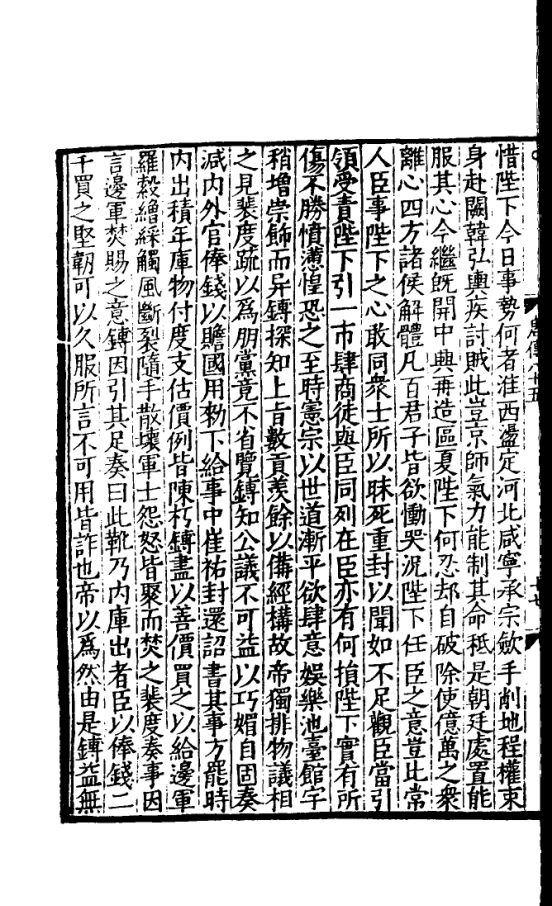 惜陛下今日事勢何者淮西盪定河北咸寧承宗斂手削地程權束
身赴闕韓弘輿疾討賊此豈京師氣力能制其命秪是朝廷處置能
服其心今繼旣開中興再造區夏陛下何忍却自破除使億萬之衆
離心四方諸侯解體凡百君子皆欲慟哭況陛下任臣之意豈比常
人臣事陛下之心敢同衆士所以昧死重封以聞如不足觀臣當引
領受責陛下引一市肆商徒與臣同列在臣亦有何損陛下實有所
傷不勝憤懣惶恐之至時憲宗以世道漸平欲肆意娛樂池臺館宇
稍增崇飾而异鎛探知上旨數貢羨餘以備經構故帝獨排物議相
之見裴度疏以爲朋黨竟不省覽鎛知公議不可益以巧媚自固奏
減内外官俸錢以贍國用勑下給事中崔祐封還詔書其事方罷時
內出積年庫物付度支估價例皆陳朽鎛盡以善價買之以給邊軍
羅縠繒綵觸風斷裂隨手散壞軍士怨怒皆聚而焚之裴度奏事因
言邊軍焚賜之意鎛因引其足奏曰此靴乃内庫出者臣以俸錢二
千買之堅韌可以久服所言不可用皆詐也帝以爲然由是鎛益無